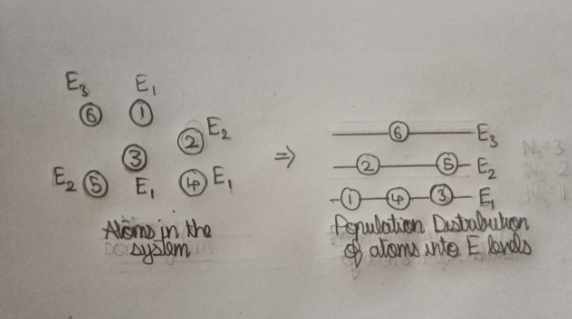 E3 E1
6 1
2 E2
3
E2 5 E1 4 E1
Atoms in the
system
⇒
6 E3
2 5 E2
1 4 3 E1
Population Distribution
of atoms into E levels